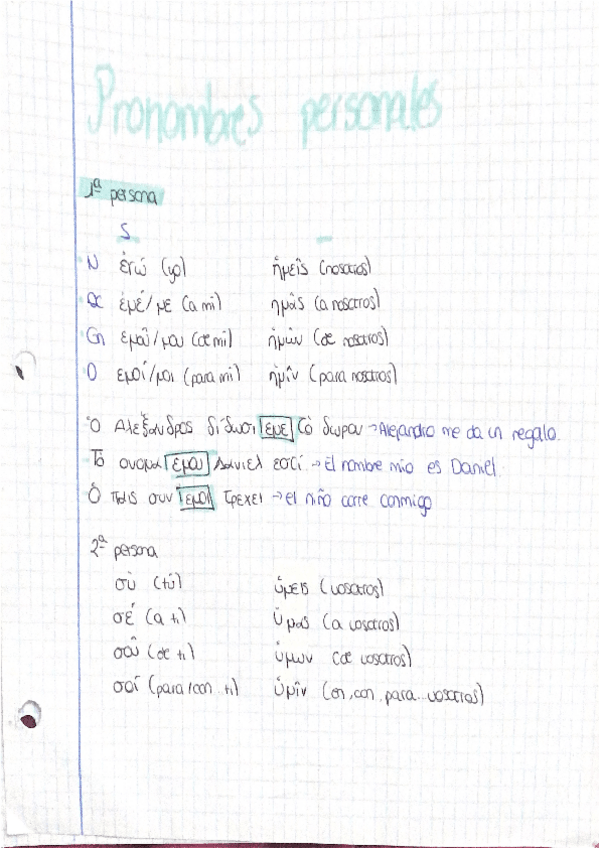 Pronombres personales
1ª persona
S
N ἐγώ (yo) ἡμεῖς (nosotros)
Ac ἐμέ/με (a mi) ημάς (a nosotros)
Gn εμοῦ/μου (de mi) ἡμών (de nosotros)
D εμοί/μοι (para mi) ἡμῖν (para nosotros)
Ὁ Αλεξανδρος δίδωσι εμε τό δωρον → Alejandro me da un regalo.
Τό ονομα εμου Δανιελ εστί → El nombre mio es Daniel.
Ὁ παις συν εμοι τρεχει → el niño corre conmigo
2ª persona
σὺ (tú) ὑμεις (vosotros)
σέ (a ti) ὑμας (a vosotros)
σοῦ (de ti) ὑμων (de vosotros)
σοί (para/con ti) ὑμῖν (en, con, para... vosotros)